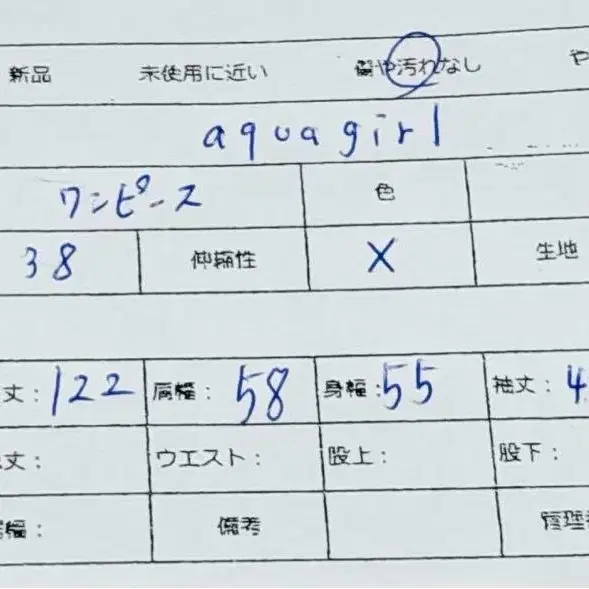 新品 未使用に近い 傷や汚れなし や
aquagirl
ワンピース 色
38 伸縮性 X 生地
丈: 122 肩幅: 58 身幅: 55 袖丈: 4
丈: ウエスト: 股上: 股下:
幅: 備考 管理